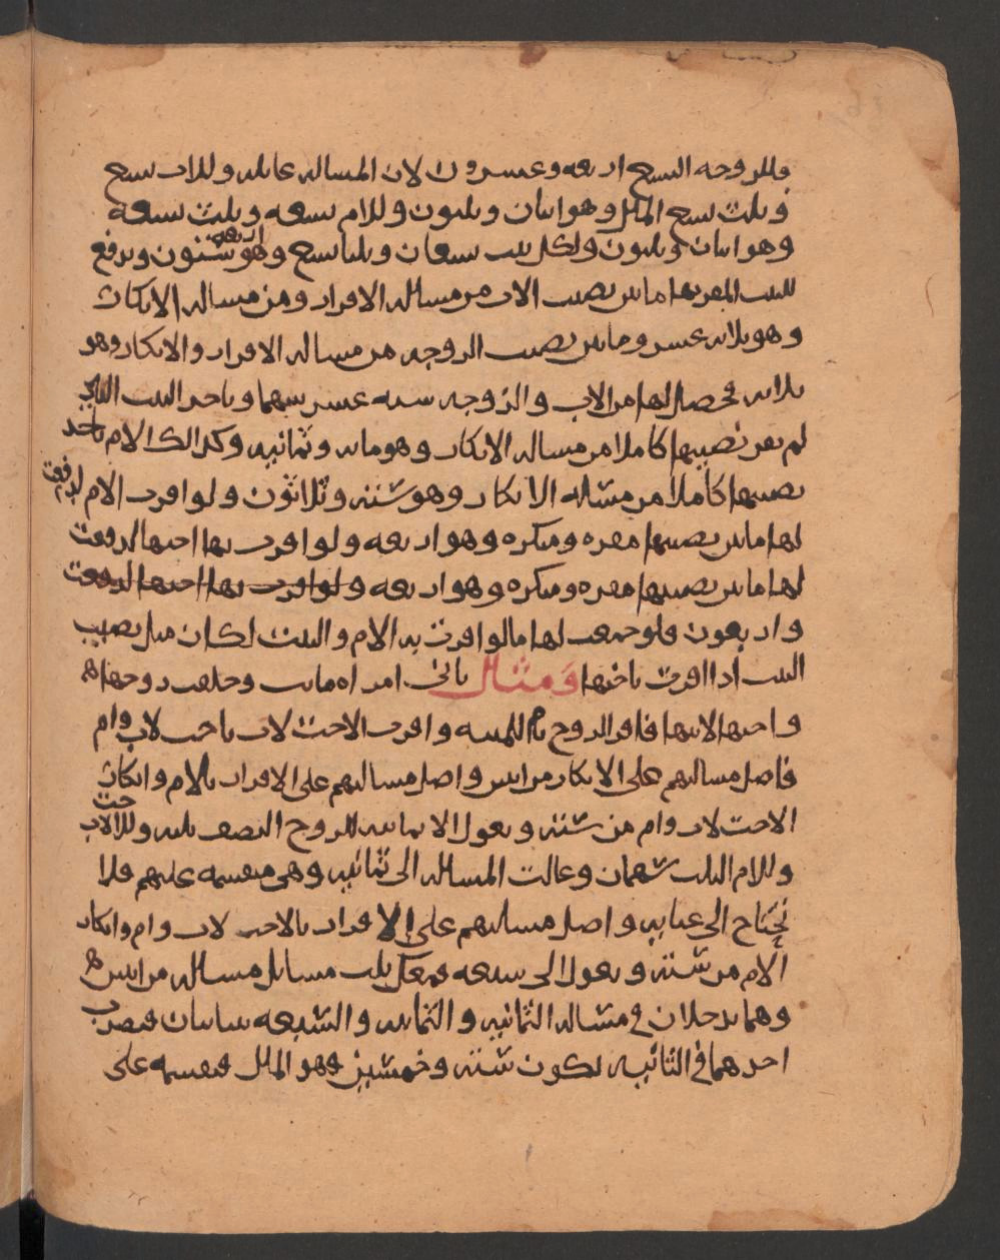 فللزوجه التسع اربعه وعسرون لان المساله عايله وللاب تسع
وثلث تسع المال وهو اثنان وثلثون وللام تسعه وثلث تسعه
وهو اثنان وثلثون ولكل بنت تسعان وثلثا تسع وهو اربعه وستون ويدفع
للبنت المقر بها مابين نصيب الاب من مساله الاقرار ومن مساله الانكار
وهو ثلاثه عسر ومابين نصيب الزوجه من مساله الاقرار والانكار وهو
ثلاثه فحصل لها من الاب والزوجه سته عسر سهما وياخذ البنت التي
لم تقر نصيبها كاملا من مساله الانكار وهو مايه وثمانيه وكذالك الام تاخد
نصيبها كاملا من مساله الانكار وهو ستة وثلاثون ولو اقرت الام لدفعت
لها مابين نصيبها مقره ومنكره وهو اربعه ولو اقرت بها اختها لدفعت
لها مابين نصيبها مقره ومنكره وهو اربعه ولو اقرت بها اختها لدفعت
واربعون فلو جمعت لها مالو اقرت به الام والبنت لكان مثل نصيب
البنت اذا اقرت باختها ومثال ثاني امراه ماتت وخلفت زوجها
واختها لابيها فاقر الزوج بام للميته واقرت الاخت لاب باخت لاب وام
فاصل مسالتهم على الانكار من اثنين واصل مسالتهم على الاقرار بالام وانكار
الاخت لاب وام من ستة وتعول الى ثمانيه للزوج النصف ثلثه وللاخت لاب
وللام الثلث سهمان وعالت المساله الى ثمانيه وهي منقسمه عليهم فلا
تحتاج الى عنايه واصل مسالتهم على الاقرار بالاخت لاب وام وانكار
الام من ستة وتعول الى سبعه فمعك ثلث مسايل مساله من اثنين
وهما يدخلان في مساله الثمانيه و الثمانيه والسبعه متباينان فتضرب
احدهما في الثانيه تكون ستة وخمسين وهو المال فتقسمه على